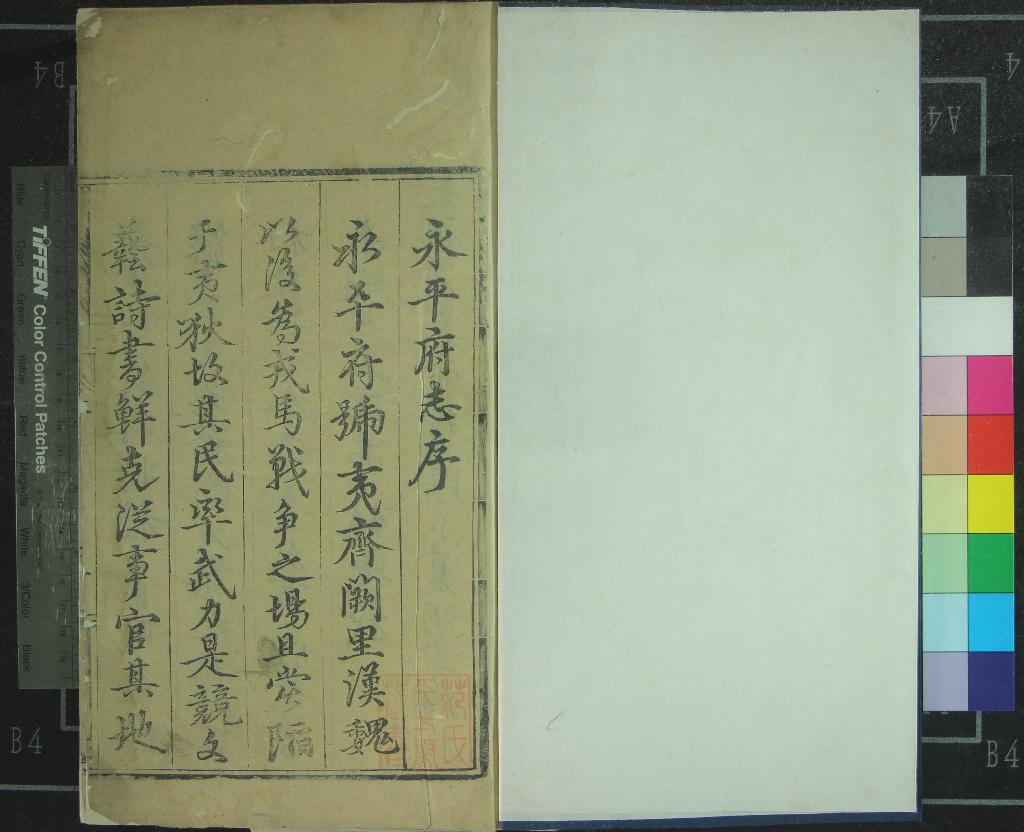 永平府志序
永平府號夷齊闕里漢魏
以後為戎馬戰爭之場且嘗陷
于夷狄故其民率武力是競文
藝詩書鮮克從事官其地
TIFFEN Color Control Patches
Blue
Cyan
Green
Yellow
Red
Magenta
White
3/Color
Black
B4
B4
B4
A4